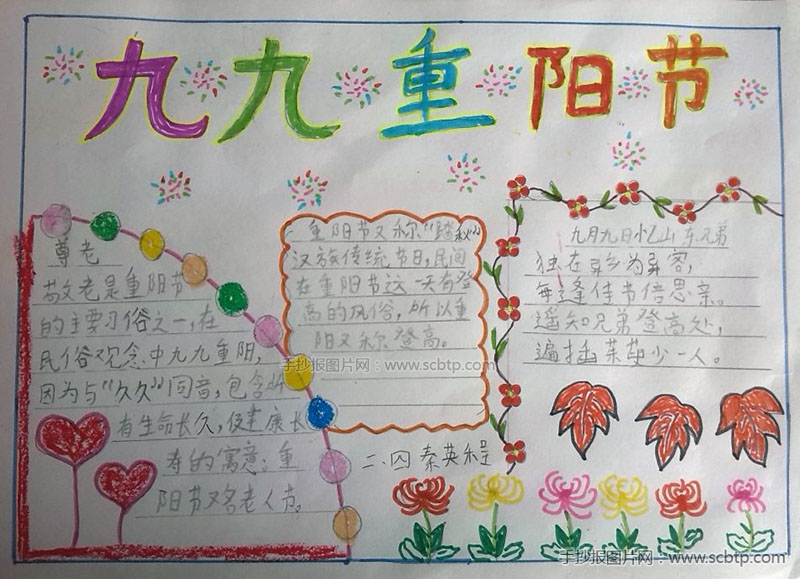 九九重阳节
尊老
敬老是重阳节
的主要习俗之一,在
民俗观念中九九重阳,
因为与“久久”同音,包含
有生命长久,健康长
寿的寓意。重
阳节又名老人节。
重阳节又称“踏秋”
汉族传统节日,民间
在重阳节这一天有登
高的风俗,所以重
阳又称登高。
手抄报图片网:www.scbtp.com
二、四 秦英程
九月九日忆山东兄弟
独在异乡为异客,
每逢佳节倍思亲。
遥知兄弟登高处,
遍插茱萸少一人。
手抄报图片网:www.scbtp.com